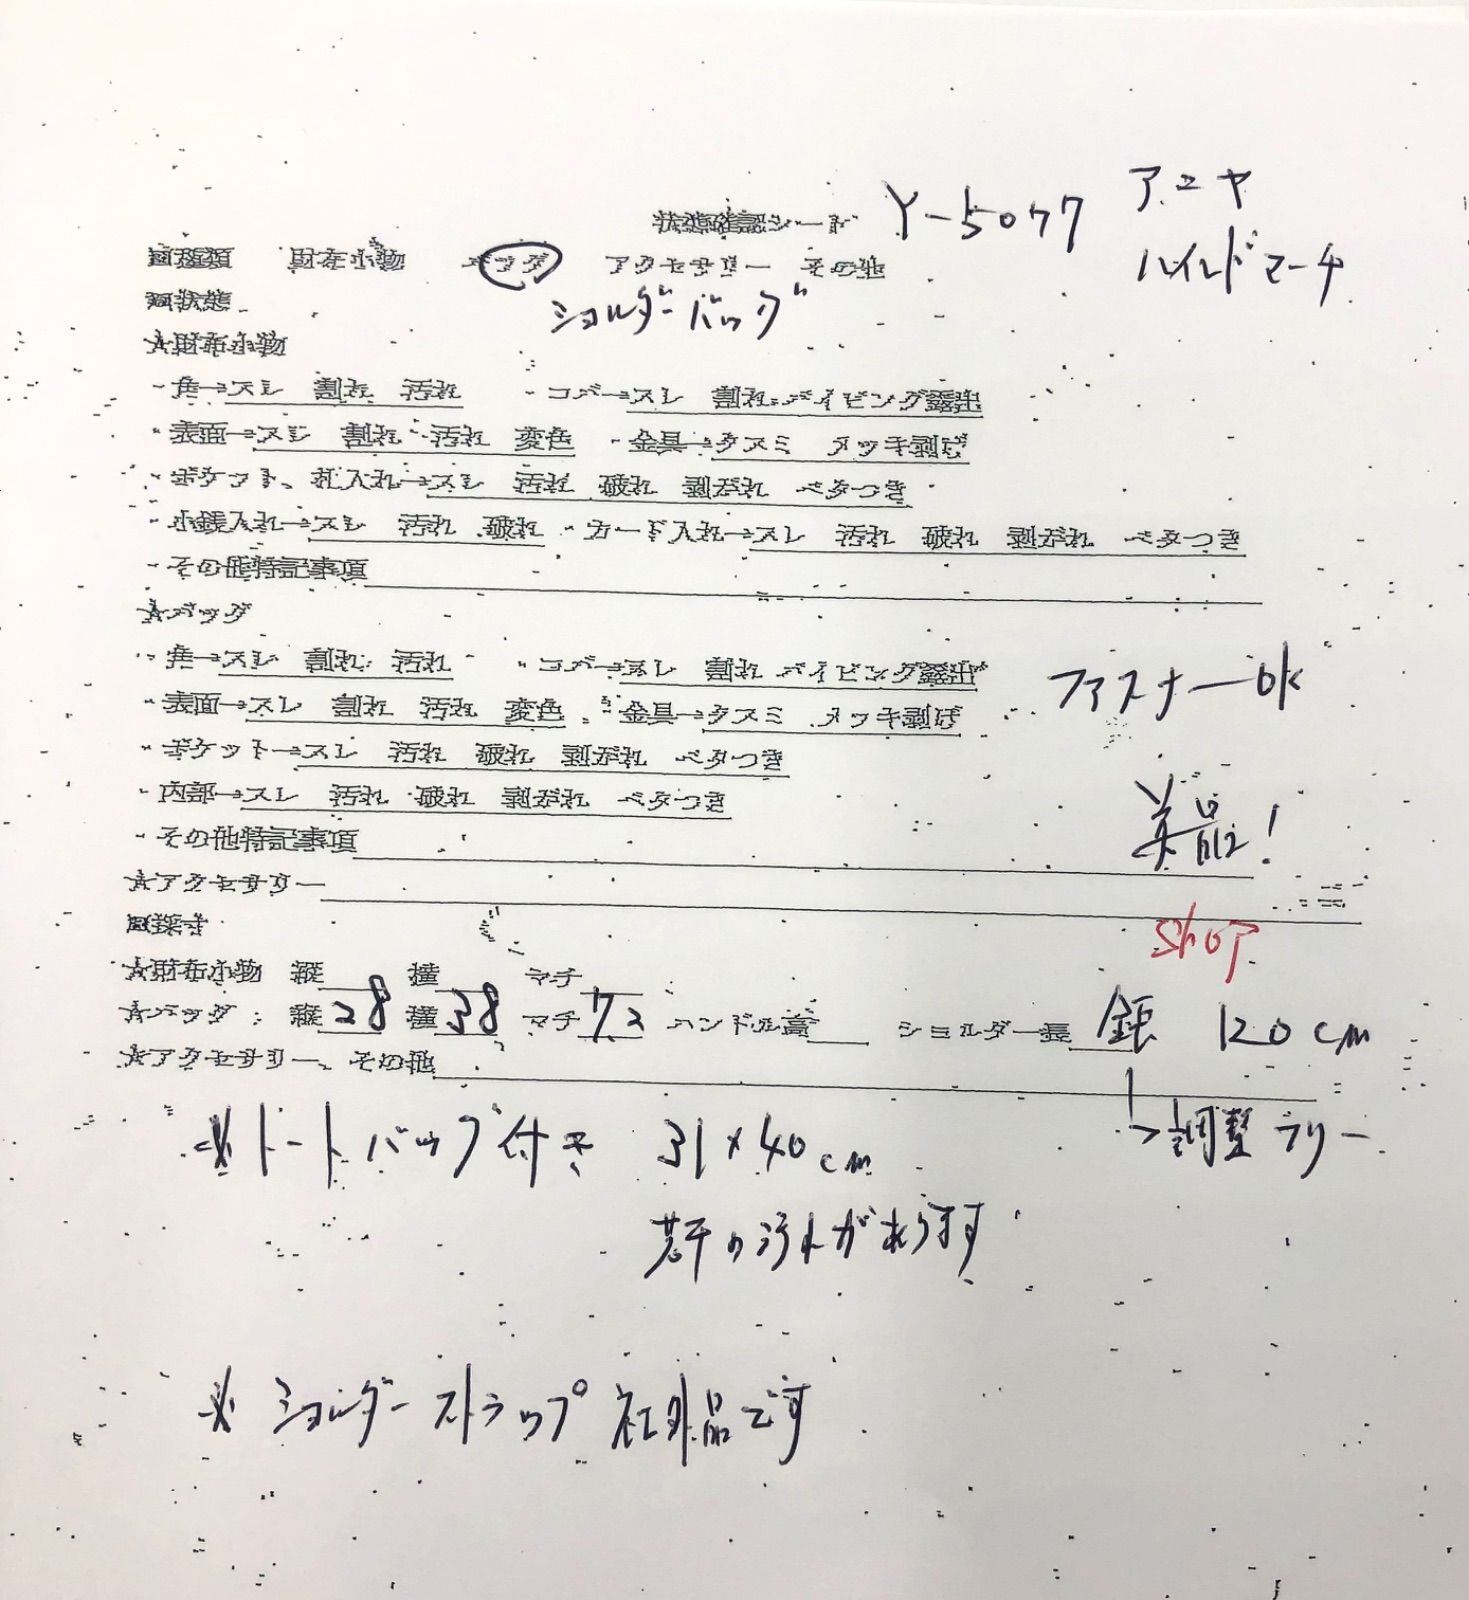 状態確認シート Y-5077 アニヤ
ハイルドマーチ
■種類 財布小物 バッグ アクセサリー その他
■状態 ショルダーバッグ
★財布小物
・角→スレ 割れ 汚れ ・コバ→スレ 割れ パイピング露出
・表面→スレ 割れ 汚れ 変色 ・金具→クスミ メッキ剥げ
・ポケット、札入れ→スレ 汚れ 破れ 剥がれ ベタつき
・小銭入れ→スレ 汚れ 破れ ・カード入れ→スレ 汚れ 破れ 剥がれ ベタつき
・その他特記事項
★バッグ
・角→スレ 割れ 汚れ ・コバ→スレ 割れ パイピング露出 ファスナーok
・表面→スレ 割れ 汚れ 変色 ・金具→クスミ メッキ剥げ
・ポケット→スレ 汚れ 破れ 剥がれ ベタつき
・内部→スレ 汚れ 破れ 剥がれ ベタつき
・その他特記事項 美品!
★アクセサリー
■採寸 shop
★財布小物 縦 横 マチ
★バッグ:縦28 横38 マチ ハンドル高 ショルダー長 120cm
★アクセサリー、その他 →調整フリー
※トートバッグ付き 31×40cm
若干の汚れがあります
※ショルダーストラップ社外品です